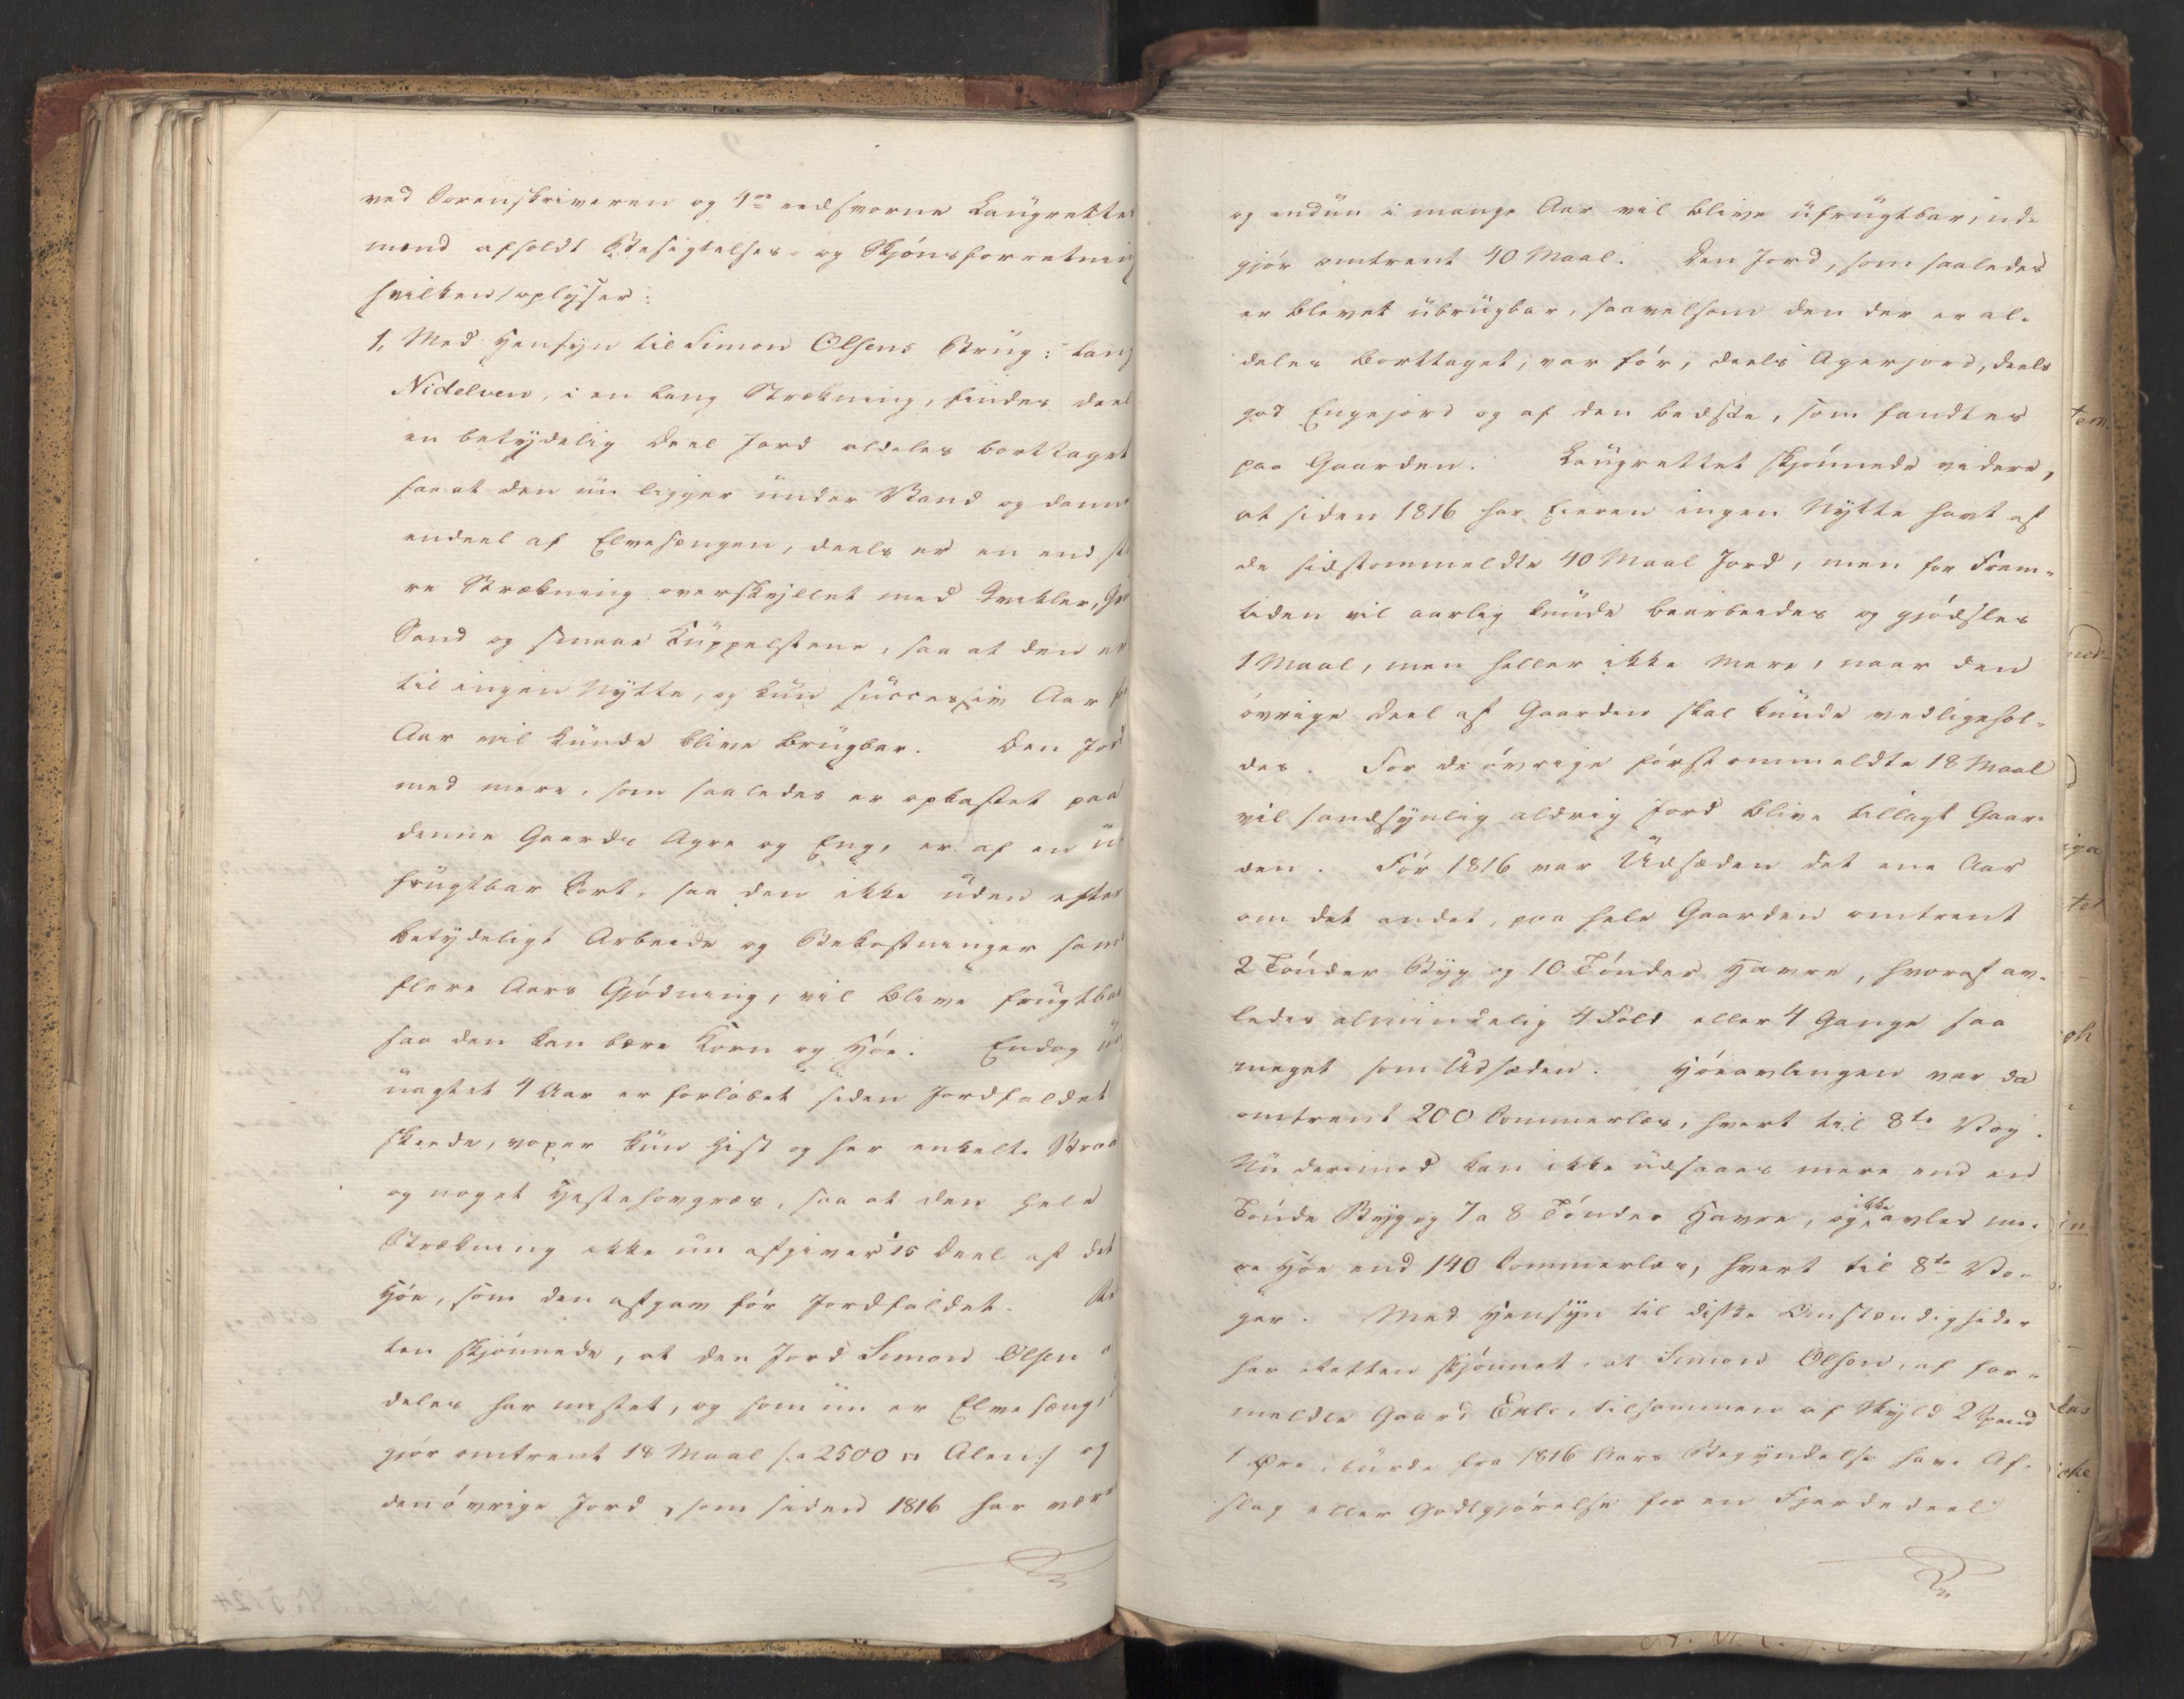 ved Sorenskriveren og 4re eedsvorne Laugrettes
mænd afholdt Besigtelses- og Skjönsforretning
hvilken oplyser:
1, Med Hensyn til Simon Olsens Brug: Langs
Nidelven, i en lang Strækning, findes deels
en betydelig Deel Jord aldeles borttaget
saa at den nu ligger under Vand og danner
endeel af Elvesængen, deels er en end stör
re Strækning overskyllet med Qvikler, Gruus
Sand og smaae Kuppelstene, saa at den er
til ingen Nytte, og kun successiv Aar for
Aar vil kunde blive brugbar. Den Jord
med mere, som saaledes er opkastet paa
denne Gaards Agre og Eng, er af en u-
frugtbar Sort, saa den ikke uden efter
betydeligt Arbeide og Bekostninger samt
flere Aars Gjödning, vil blive frugtbar
saa den kan bære Korn og Höe. Endog
uagtet 4 Aar er forlöbet siden Jordfaldet
skeede, voxer kun hist og her enkelte Straa
og noget Hestehovgræs, saa at den hele
Strækning ikke nu afgiver 1/15 Deel af det
Höe, som den afgav för Jordfaldet. Ret
ten skjönnede, at den Jord Simon Olsen al
deles har mistet, og som nu er Elvesæng,
gjör omtrent 18 Maal /: a 2500 □ Alen :/ og
den övrige Jord, som siden 1816 har været
og endnu i mange Aar vil blive ufrugtbar, ud-
gjör omtrent 40 Maal. Den Jord, som saaledes
er blevet ubrugbar, saavelsom den der er al-
deles borttaget, var för, deels Agerjord, deels
god Engejord og af den bedste, som fandtes
paa Gaarden. Laugrettet skjönnede videre,
at siden 1816 har Eieren ingen Nytte havt af
de sidstommeldte 40 Maal Jord, men for Frem-
tiden vil aarlig kunde bearbeides og gjödsles
1 Maal, men heller ikke mere, naar den
övrige Deel af Gaarden skal kunde vedligehol-
des. For de övrige först ommeldte 18 Maal
vil sandsynlig aldrig Jord blive tillagt Gaar-
den. För 1816 var Udsæden det ene Aar
om det andet, paa hele Gaarden omtrent
2 Tönder Byg og 10 Tönder Havre, hvoraf av-
ledes almindelig 4 Fold eller 4 Gange saa
meget som Udsæden. Höeavlingen var da
omtrent 200 Sommerlæs, hvert til 8te Vog.
Nu derimod kan ikke udsaaes mere end en
Tönde Byg og 7 a 8 Tönder Havre, og ikke avles me-
re Höe end 140 Sommerlæs, hvert til 8te Vo-
ger. Med Hensyn til disse Omstændigheder
har Retten skjönnet, at Simon Olsen, af for-
meldte Gaard Erle, tilsammen af Skyld 2 Spand
1 Öre, burde fra 1816 Aars Begyndelse have Af-
slag eller Godtgjörelse for en Fjerdedeel